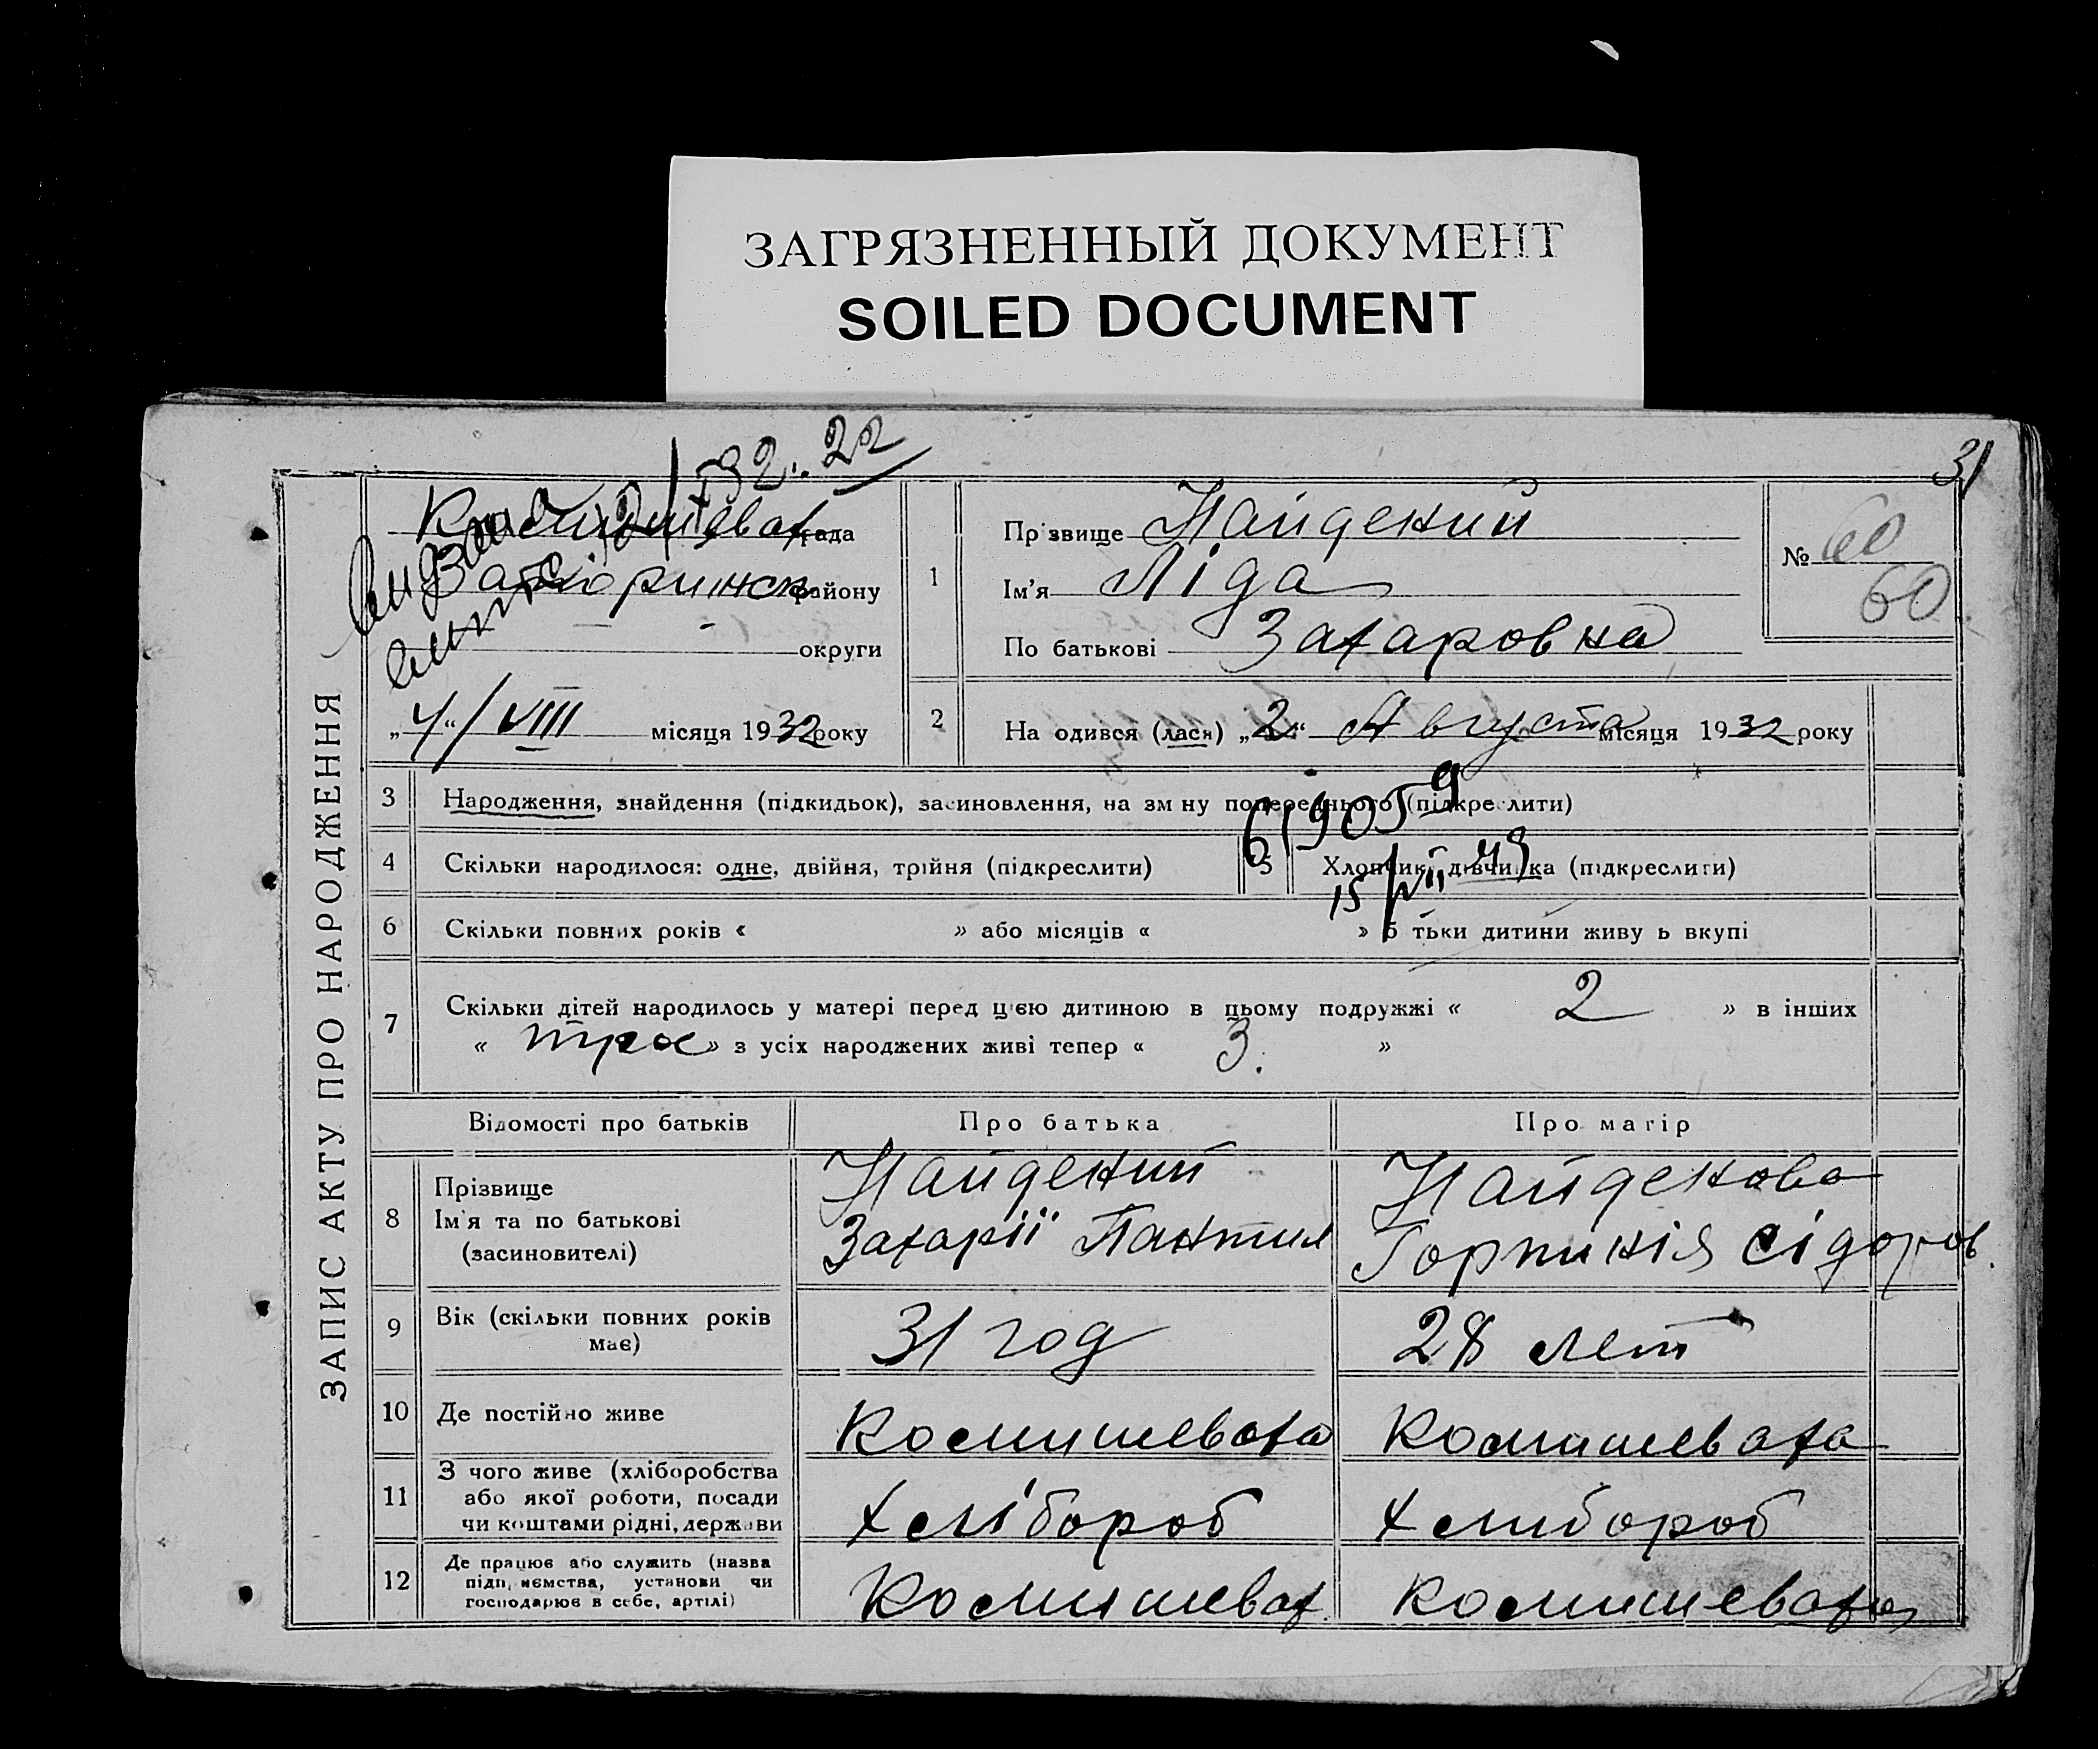 ЗАГРЯЗНЕННЫЙ ДОКУМЕНТ
SOILED DOCUMENT
31
ЗАПИС АКТУ ПРО НАРОДЖЕННЯ
рада
району
округи
„4“/VIII місяця 1932 року
1
Прізвище Найдений
Ім'я Ліда
По батькові Захаровна
№ 60
60
2
На одився (лася) „2“ Августа місяця 1932 року
3 Народження, знайдення (підкидьок), засиновлення, на зм ну попереднього (підкреслити)
4 Скільки народилося: одне, двійня, трійня (підкреслити)
5 Хлопчик, дівчинка (підкреслити)
15/VII 49
6 Скільки повних років « » або місяців « » б тьки дитини живу ь вкупі
7 Скільки дітей народилось у матері перед цією дитиною в цьому подружжі « 2 » в інших
« трое » з усіх народжених живі тепер « 3. »
Відомості про батьків Про батька Про матір
8 Прізвище
Ім'я та по батькові
(засиновителі)
Найдений
Захарії Пантил
Найденова
Горпинія Сідоров.
9 Вік (скільки повних років
має)
31 год
28 лет
10 Де постійно живе
Комишевата
Комишевата
11 З чого живе (хліборобства
або якої роботи, посади
чи коштами рідні, держави
Хлібороб
Хлибороб
12 Де працює або служить (назва
підп, иємства, установи чи
господарює в себе, артілі)
Комишеват
Комишевата